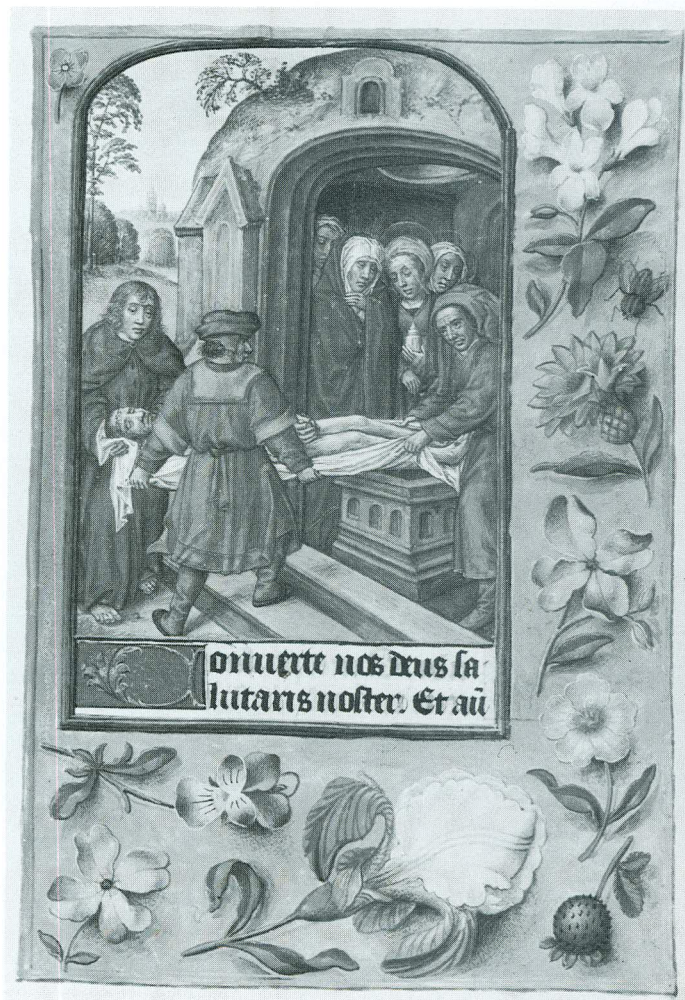 Conuerte nos deus sa
lutaris noster. Et aū